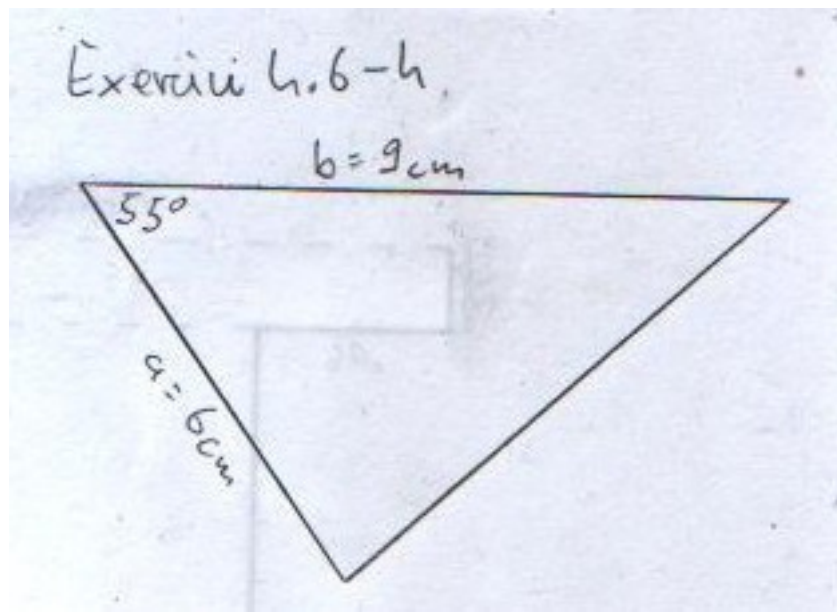 Exercici 4.6-4
b = 9 cm
55º
a = 6 cm